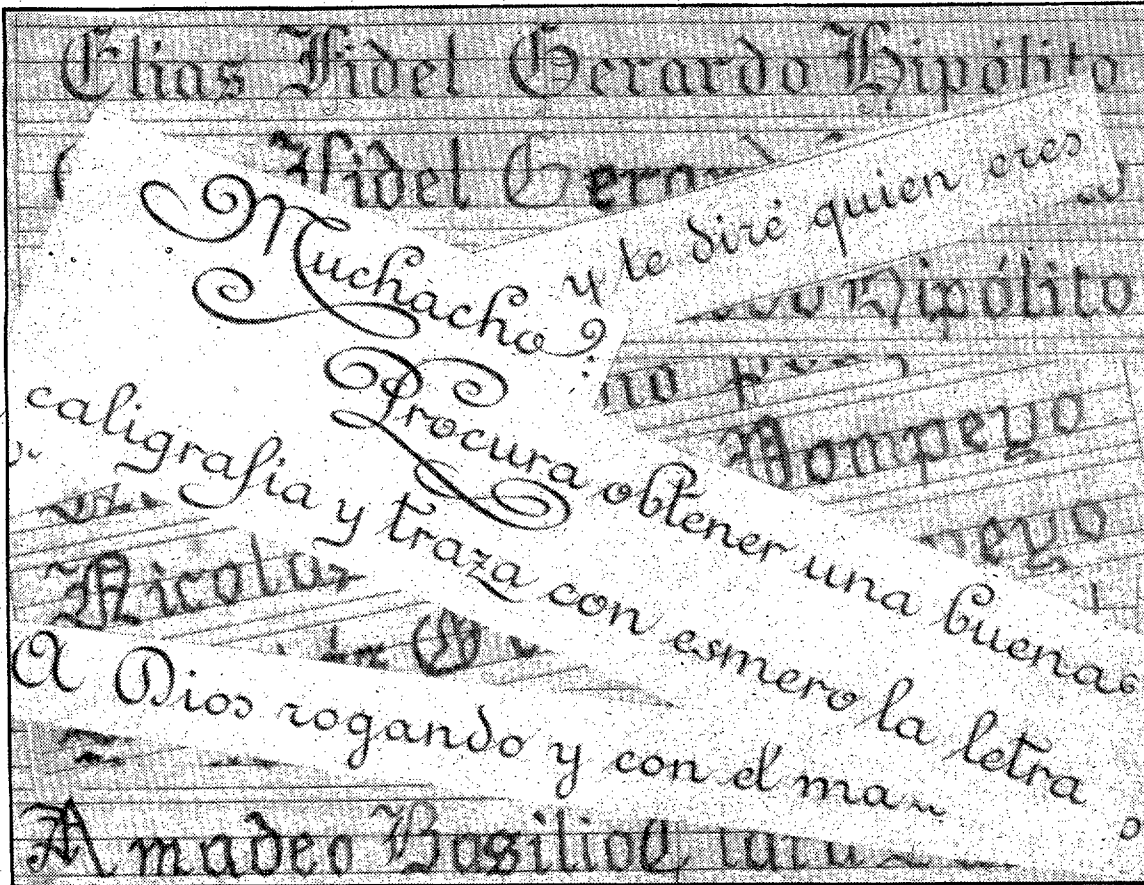 Elias Fidel Gerardo Hipólito
Fidel
y te diré quien eres
Muchacho?
Hipólito
Procura obtener una buena
caligrafia y traza con esmero la letra
Pompeyo
Nicolas
A Dios rogando y con el ma
Amadeo Basilio